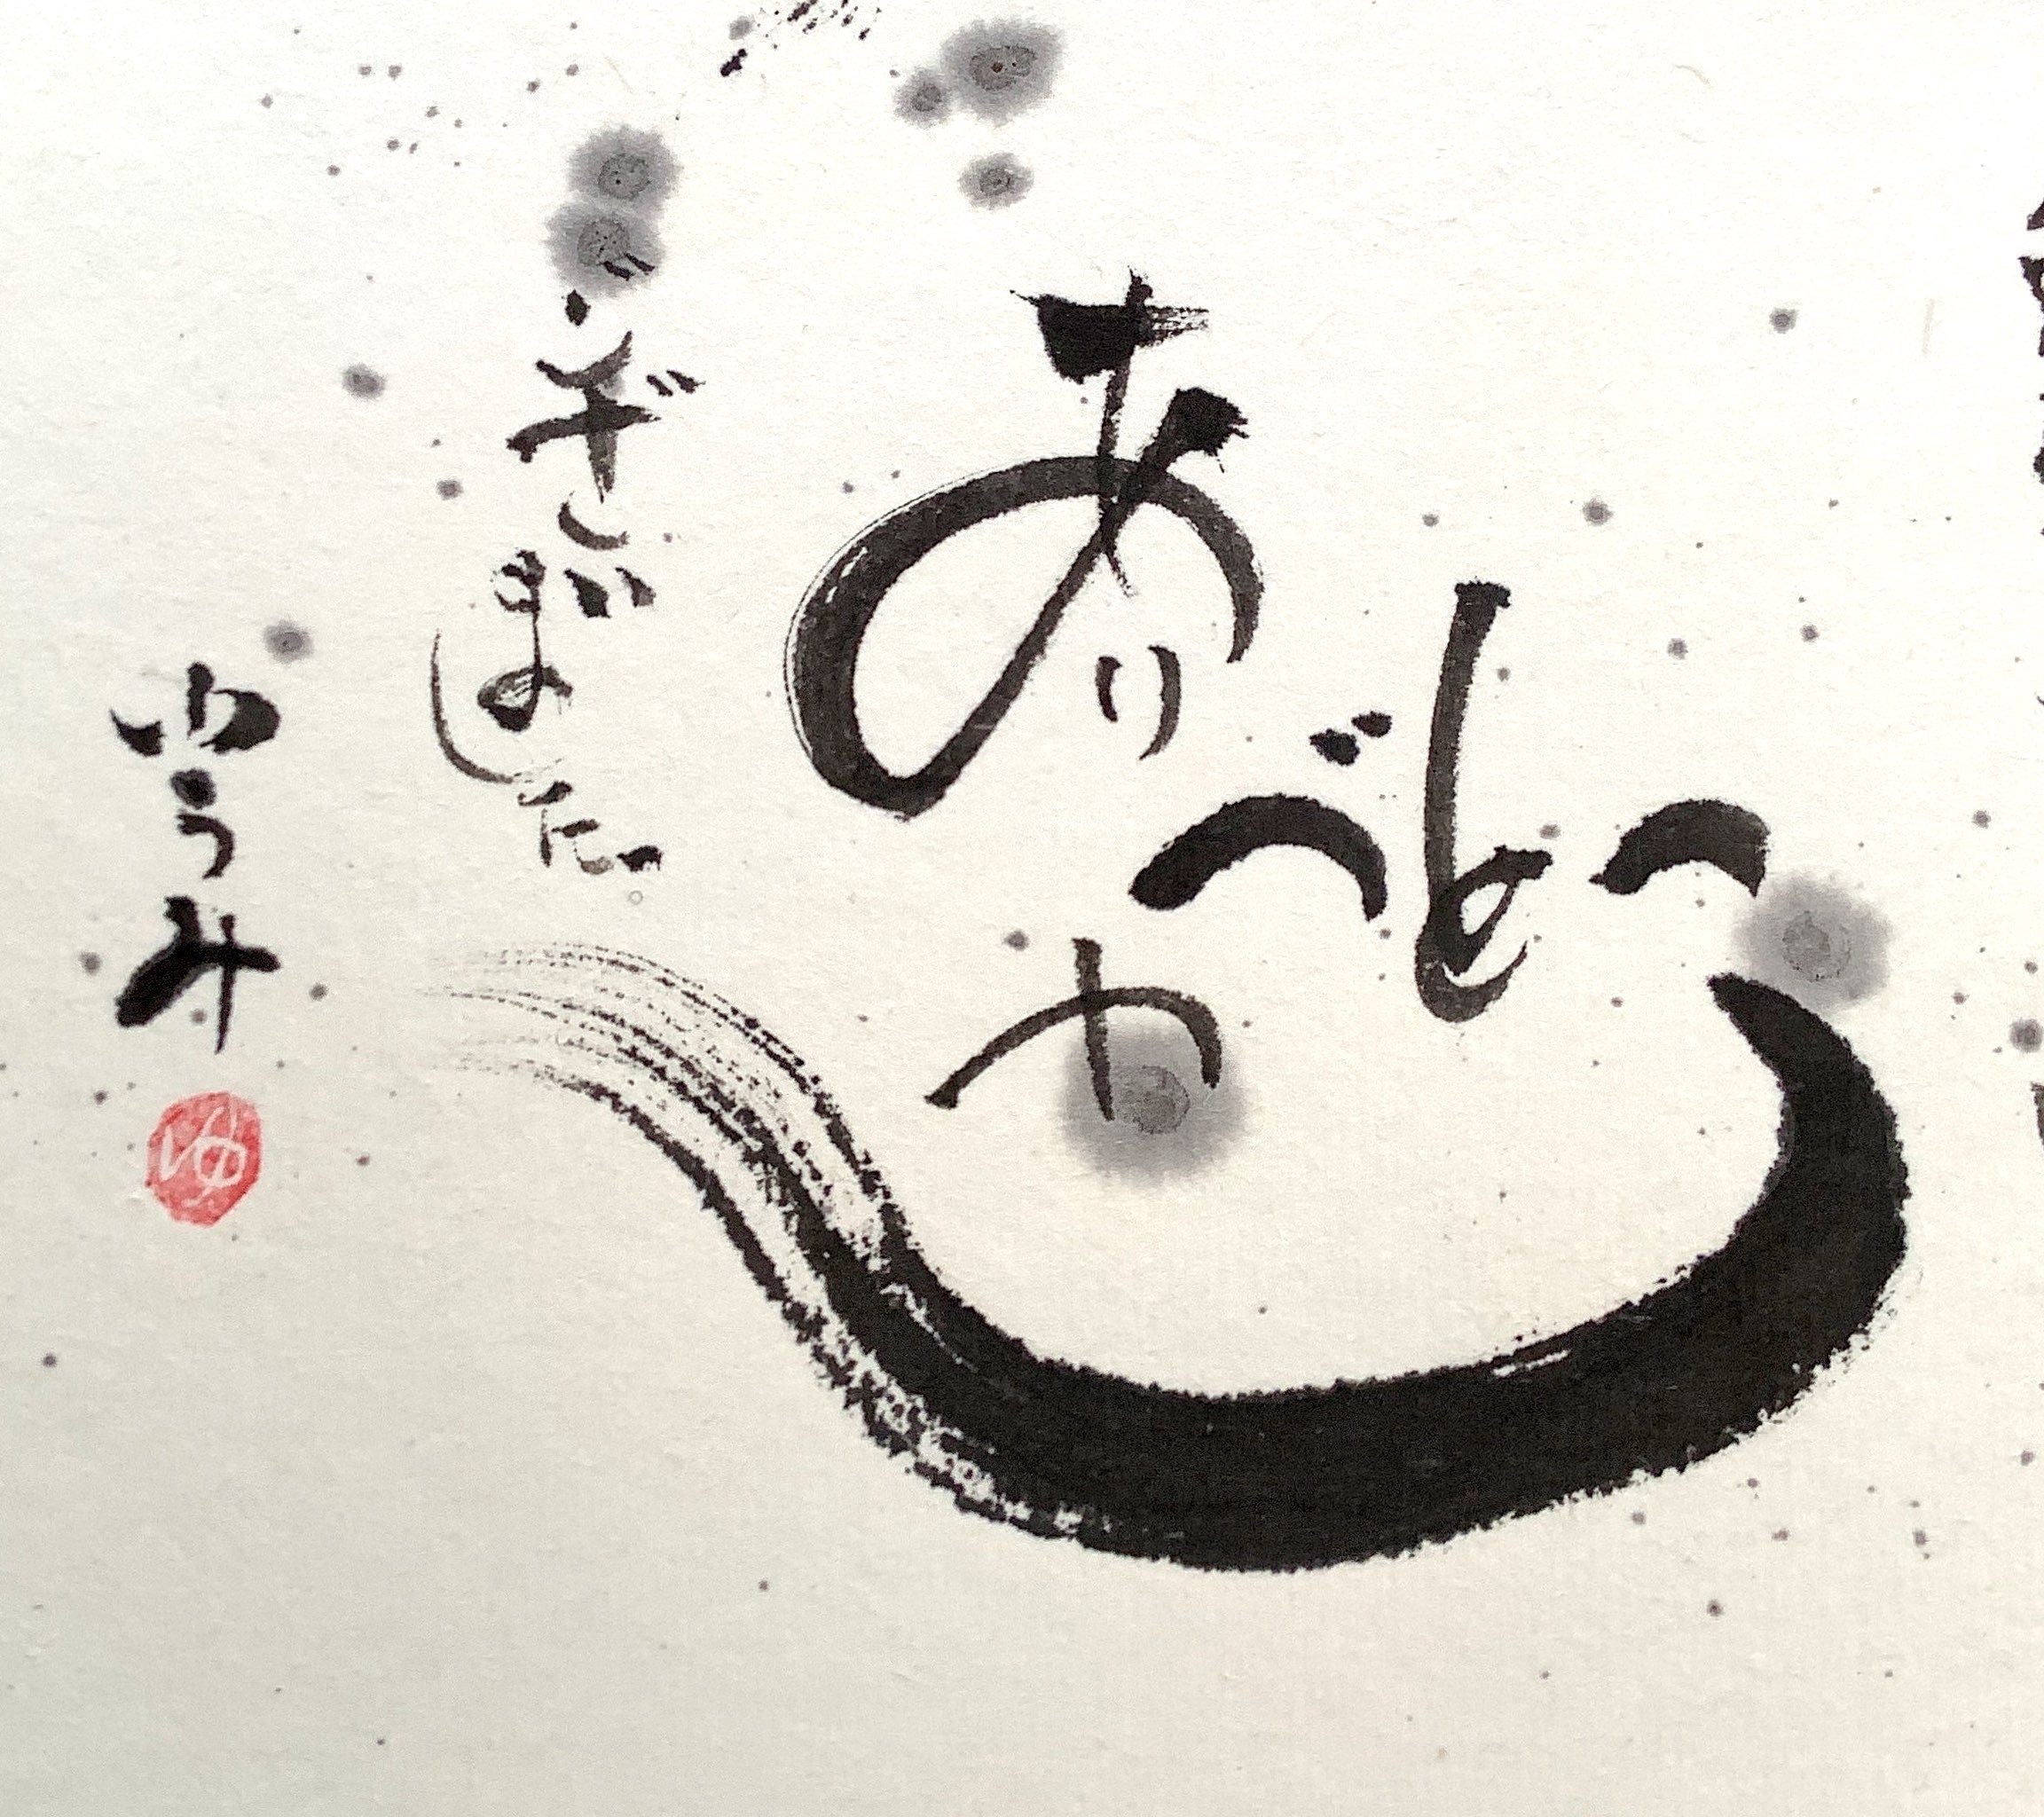 ありがとう
ございました
ゆうみ
ゆ